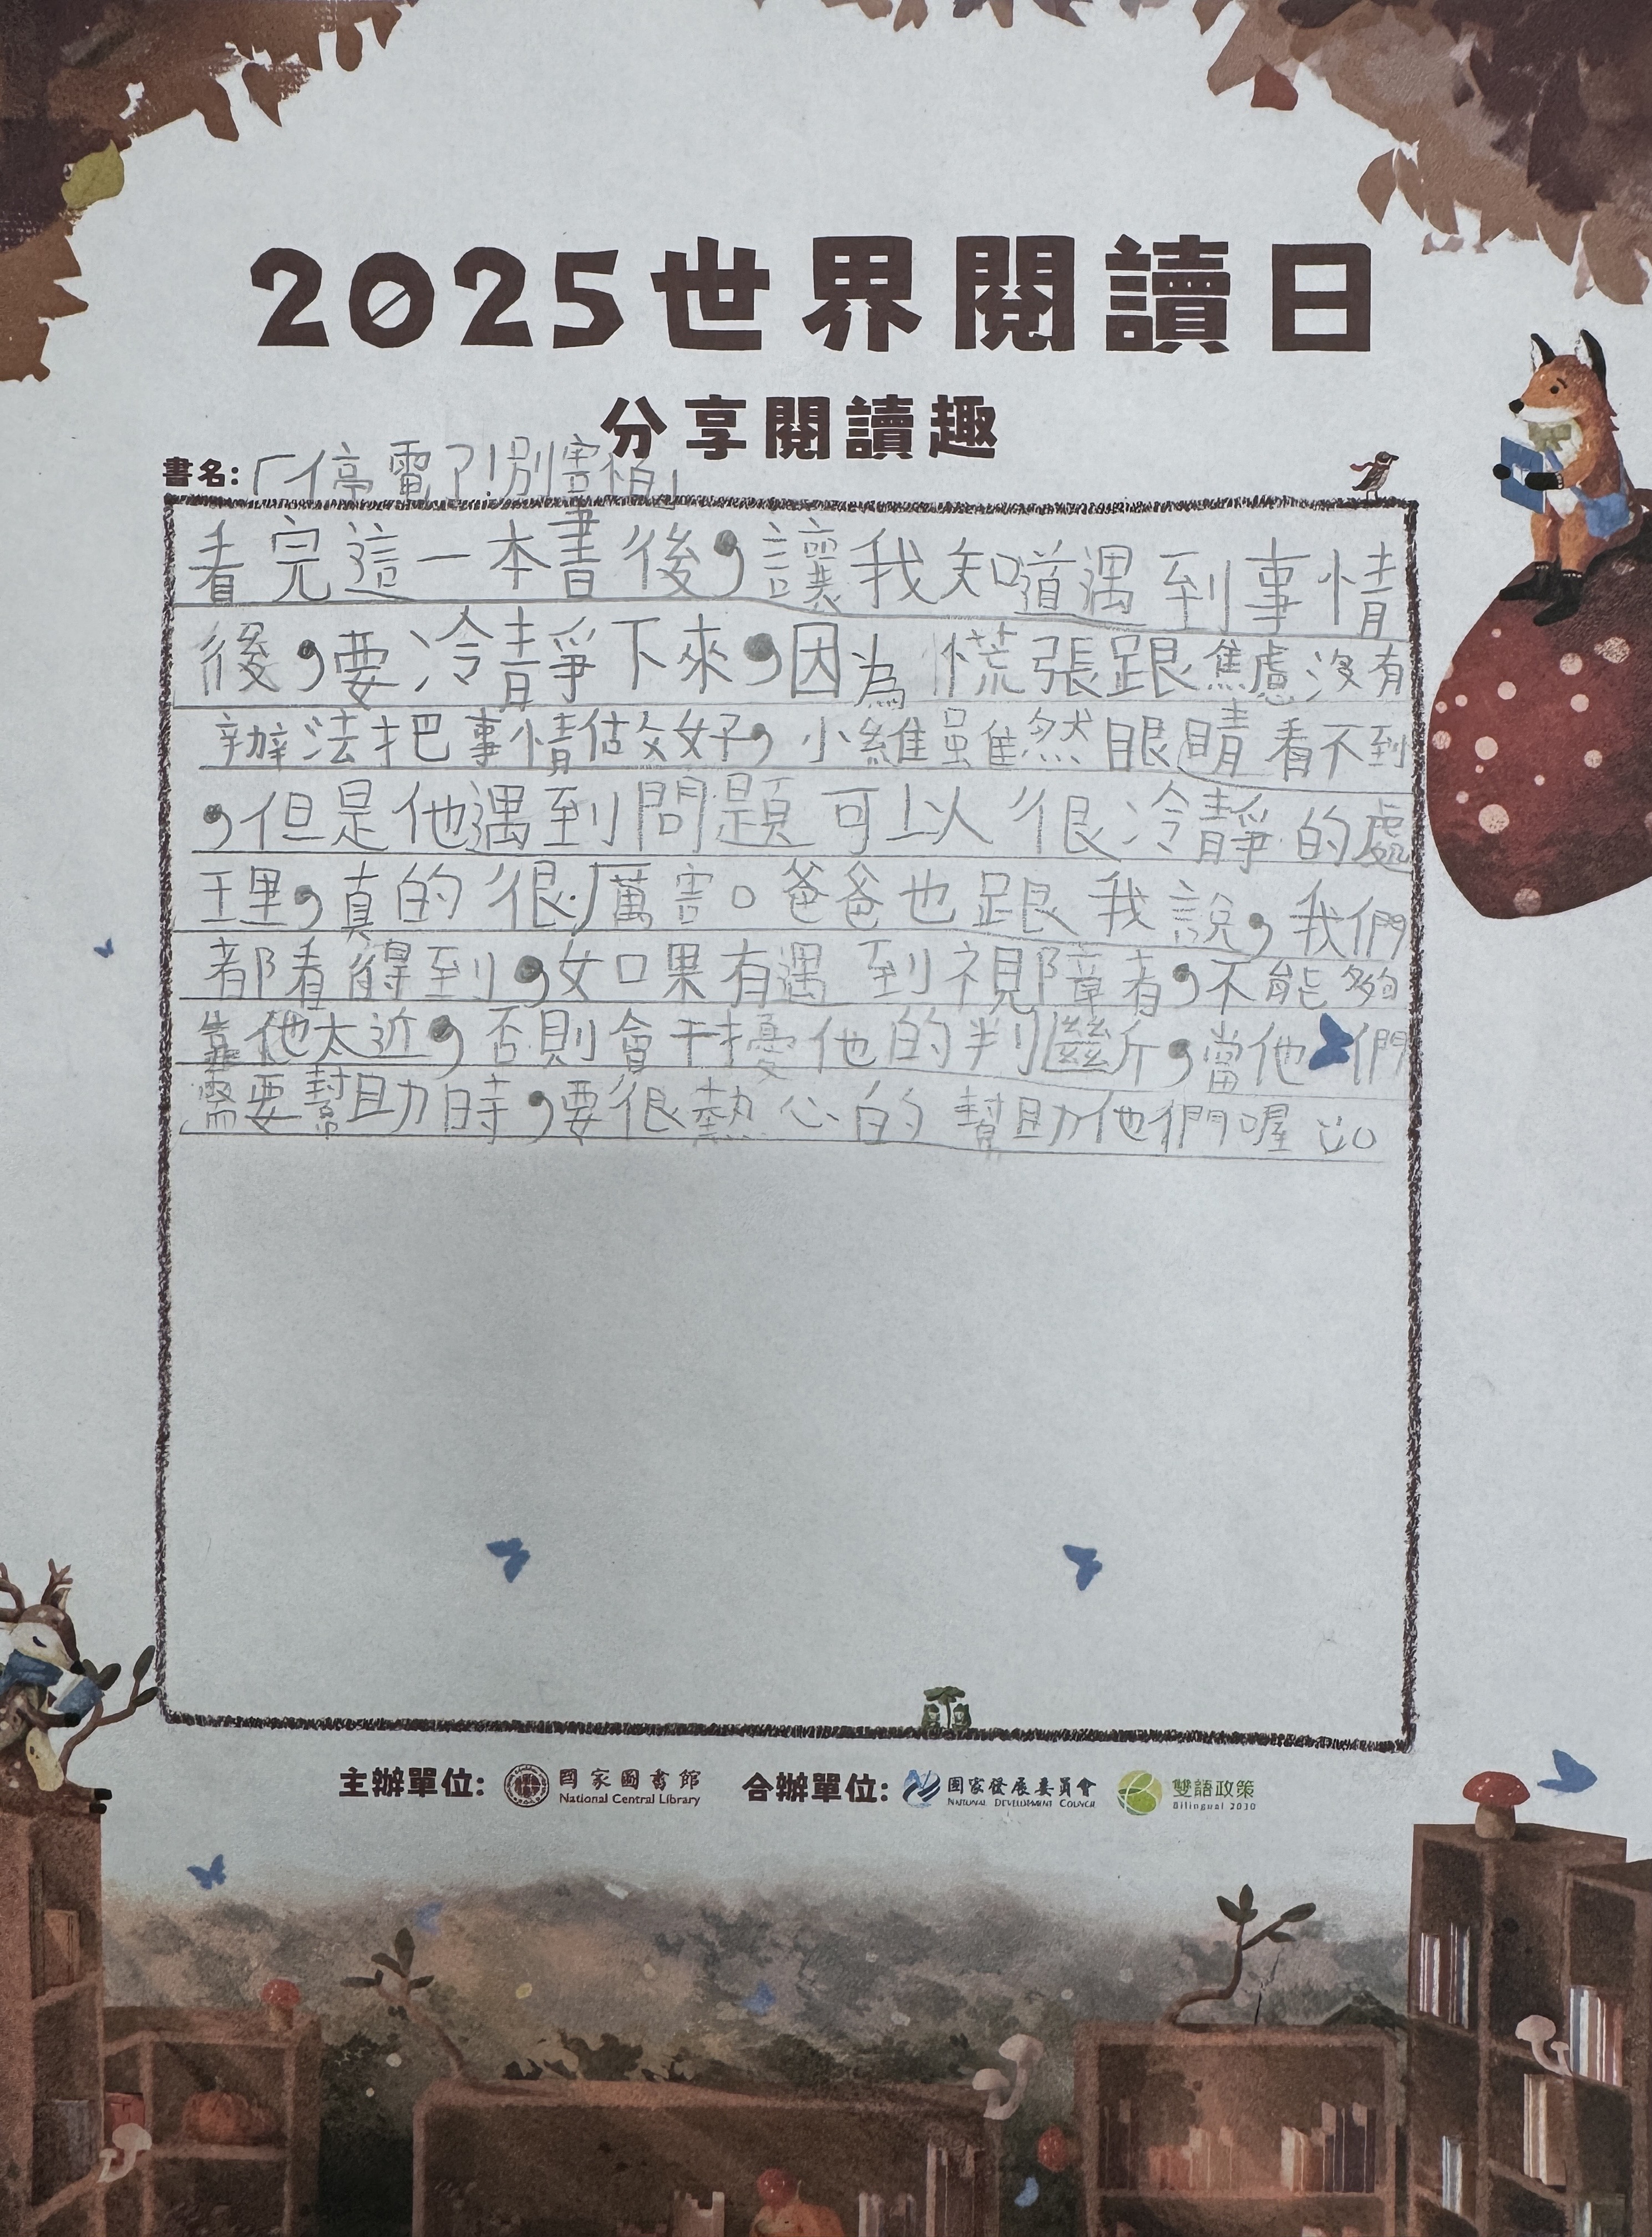 2025世界閱讀日
分享閱讀趣
書名:「停電了!別害怕」
看完這一本書後,讓我知道遇到事情
後,要冷靜下來,因為慌張跟焦慮沒有
辦法把事情做好,小維雖然眼睛看不到
,但是他遇到問題可以很冷靜的處
理,真的很厲害。爸爸也跟我說,我們
都看得到,如果有遇到視障者,不能夠
靠他太近,否則會干擾他的判斷,當他們
需要幫助時,要很熱心的幫助他們喔。
主辦單位: 國家圖書館 National Central Library 合辦單位: 國家發展委員會 National Development Council 雙語政策 Bilingual 2030